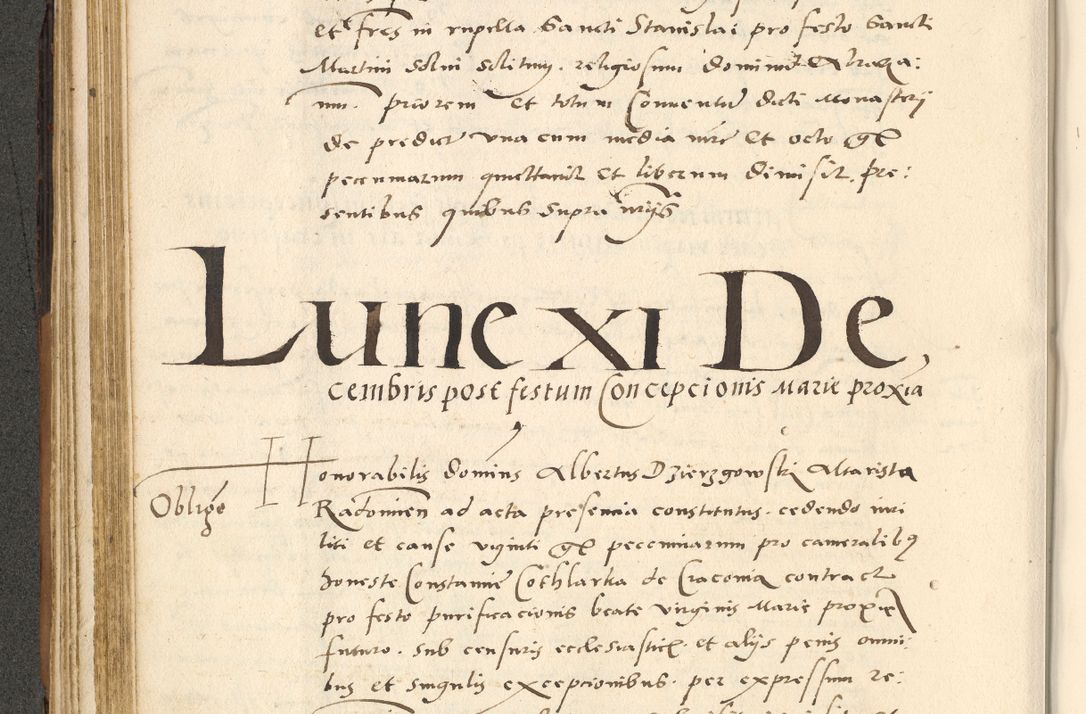 et fres in capella Sancti Stanislai pro festo Sancti
Martini solui solitum. religiosum dominum
num. priorem et totum Conuentum dicti Monasterij
de predict una cum media mrc et octo gr
pecuniarum quittauit et liberum dimisit, pre:
sentibus quibus supra
Lune XI De,
cembris post festum Concepcionis Marie proxia
Honorabilis dominus Albertus Dzierzgowski Altarista
Obligo
Radomien ad acta presencia constitutus. cedendo iuri
liti et cause viginti gr pecuniarum pro cameralibus
honeste Constancie Cothlarka de Cracouia contract
pro festo purificacionis beate virginis Marie proxie
futuro. sub censuris ecclesiastic. et alijs penis omni:
bus et singulis excepcionibus. per expressum re: